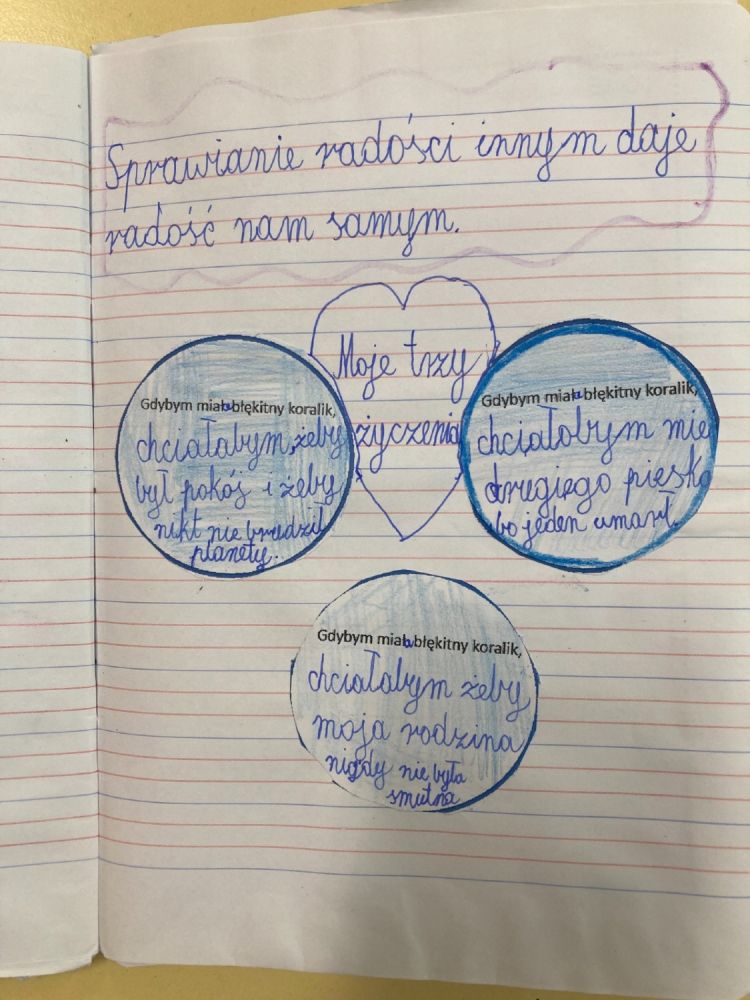 Sprawianie radości innym daje
radość nam samym.
Moje trzy
życzenia
Gdybym miała błękitny koralik,
chciałabym, żeby
był pokój i żeby
nikt nie brudził
planety.
Gdybym miała błękitny koralik,
chciałabym mie
drugiego pieska
bo jeden umarł.
Gdybym miała błękitny koralik,
chciałabym żeby
moja rodzina
nigdy nie była
smutna